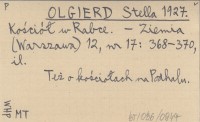 P OLGIERD Stella 1927.
Kościół w Rabce. – Ziemia
(Warszawa) 12, nr 17: 368–370,
il.
Też o kościołach na Podhalu.
WHP
MT